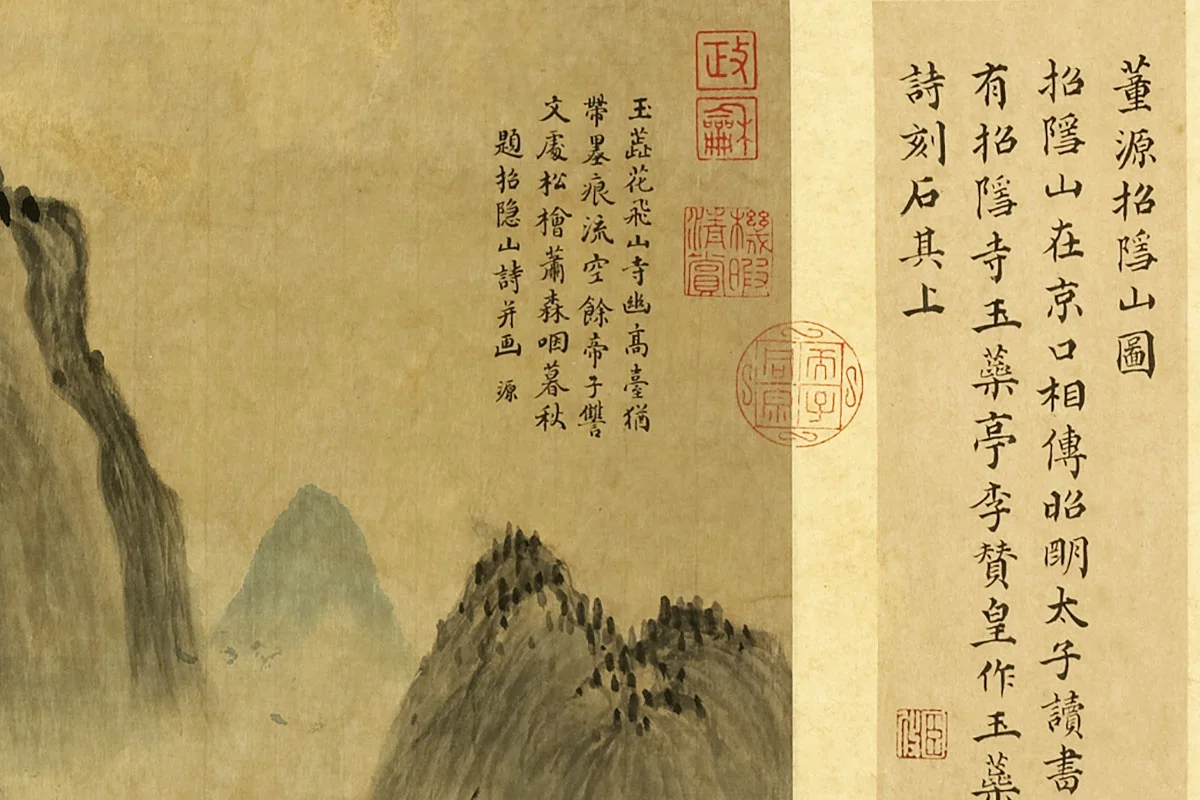 董源招隱山圖
招隱山在京口相傳昭明太子讀書
有招隱寺玉蘂亭李賛皇作玉蘂
詩刻石其上
政
龢
機暇清賞
玉蕋花飛山寺幽高臺猶
帶墨痕流空餘帝子讐
文處松檜蕭森咽暮秋
題招隐山詩并画 源